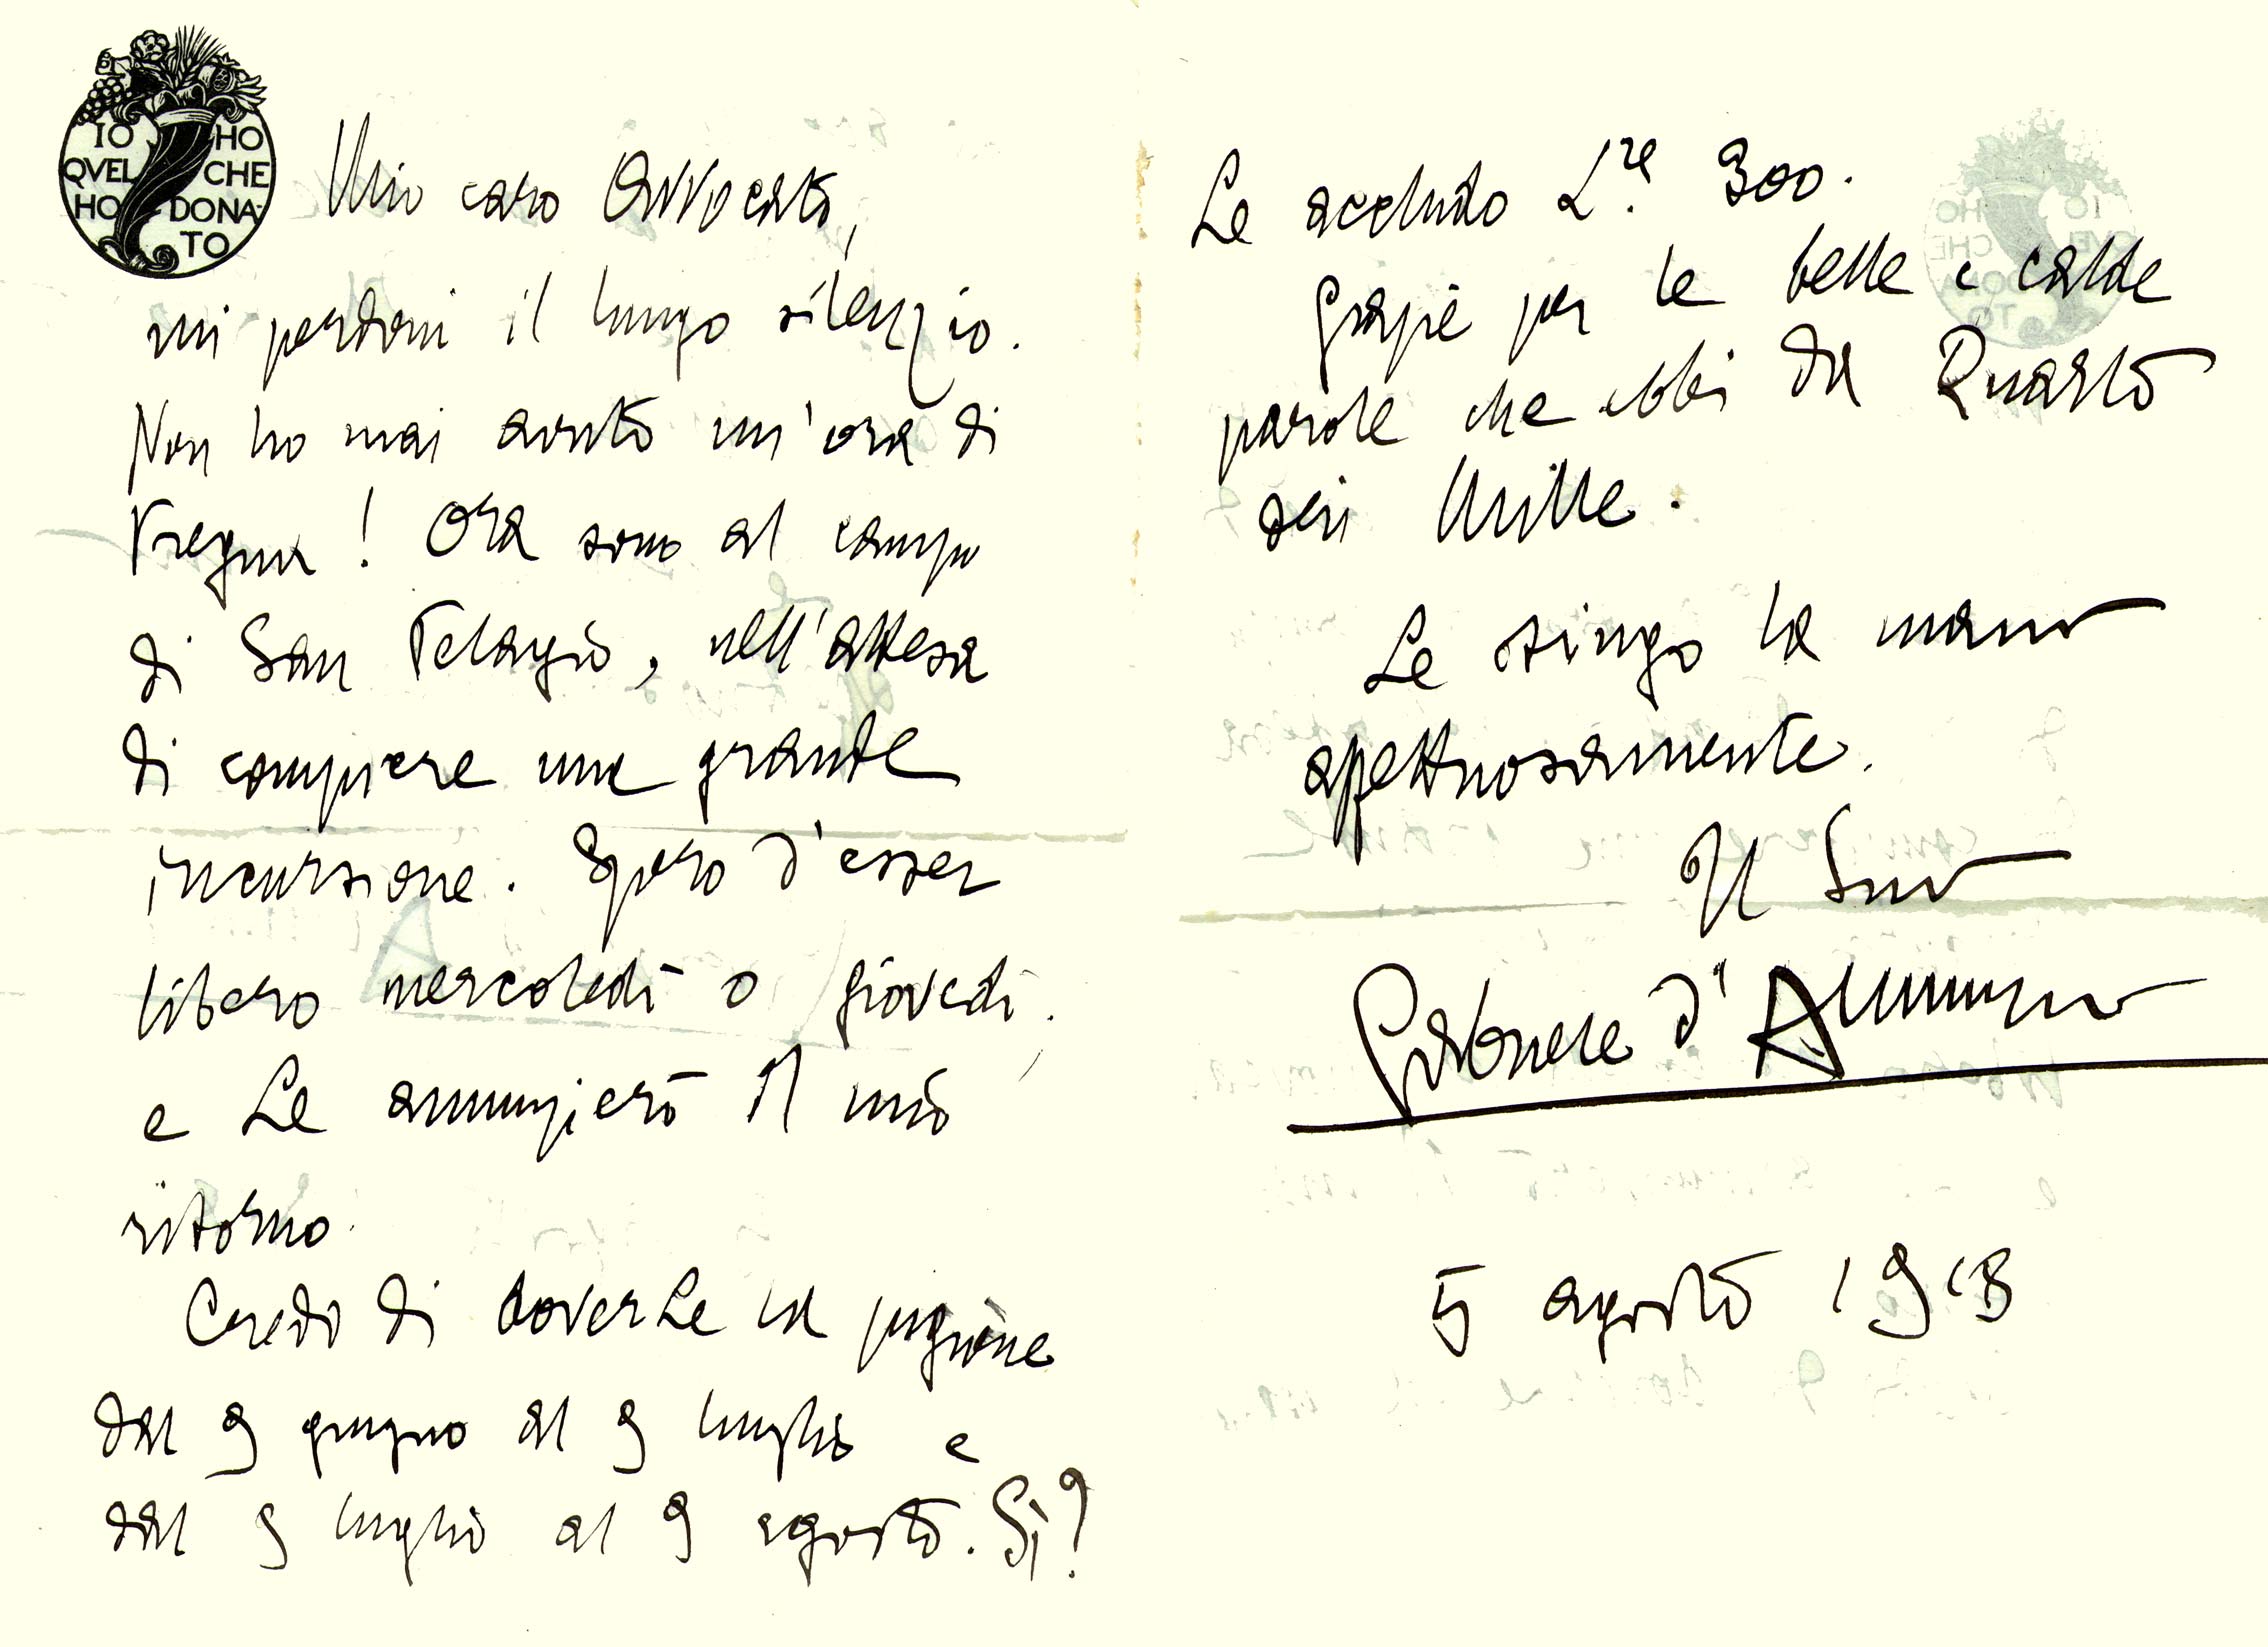 IO HO
QVEL CHE
HO DONA-
TO
Mio caro Avvocato,
mi perdoni il lungo silenzio.
Non ho mai avuto un'ora di
tregua! Ora sono al campo
di San Pelagio, nell'attesa
di compiere una grande
incursione. Spero d'esser
libero mercoledì o giovedì.
e Le annunzierò il mio
ritorno.
Credo di doverLe la pigione
dal 9 giugno al 9 luglio e
dal 9 luglio al 9 agosto. Sì?
Le accludo L.re 300.
Grazie per le belle e calde
parole che ebbi da Quarto
dei Mille.
Le stringo la mano
affettuosamente.
Il Suo
Gabriele d'Annunzio
5 agosto 1918